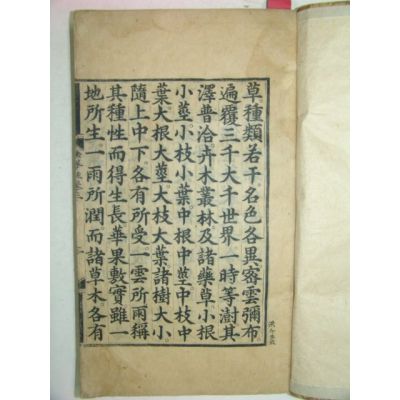 草種類若干名色各異密雲彌布
遍覆三千大千世界一時等澍其
澤普洽卉木叢林及諸藥草小根
小莖小枝小葉中根中莖中枝中
葉大根大莖大枝大葉諸樹大小
隨上中下各有所受一雲所雨稱
其種性而得生長華果敷實雖一
地所生一雨所潤而諸草木各有